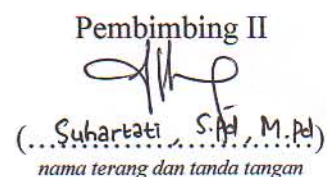 Pembimbing II
(Suhartati, S.Pd, M.Pd)
nama terang dan tanda tangan